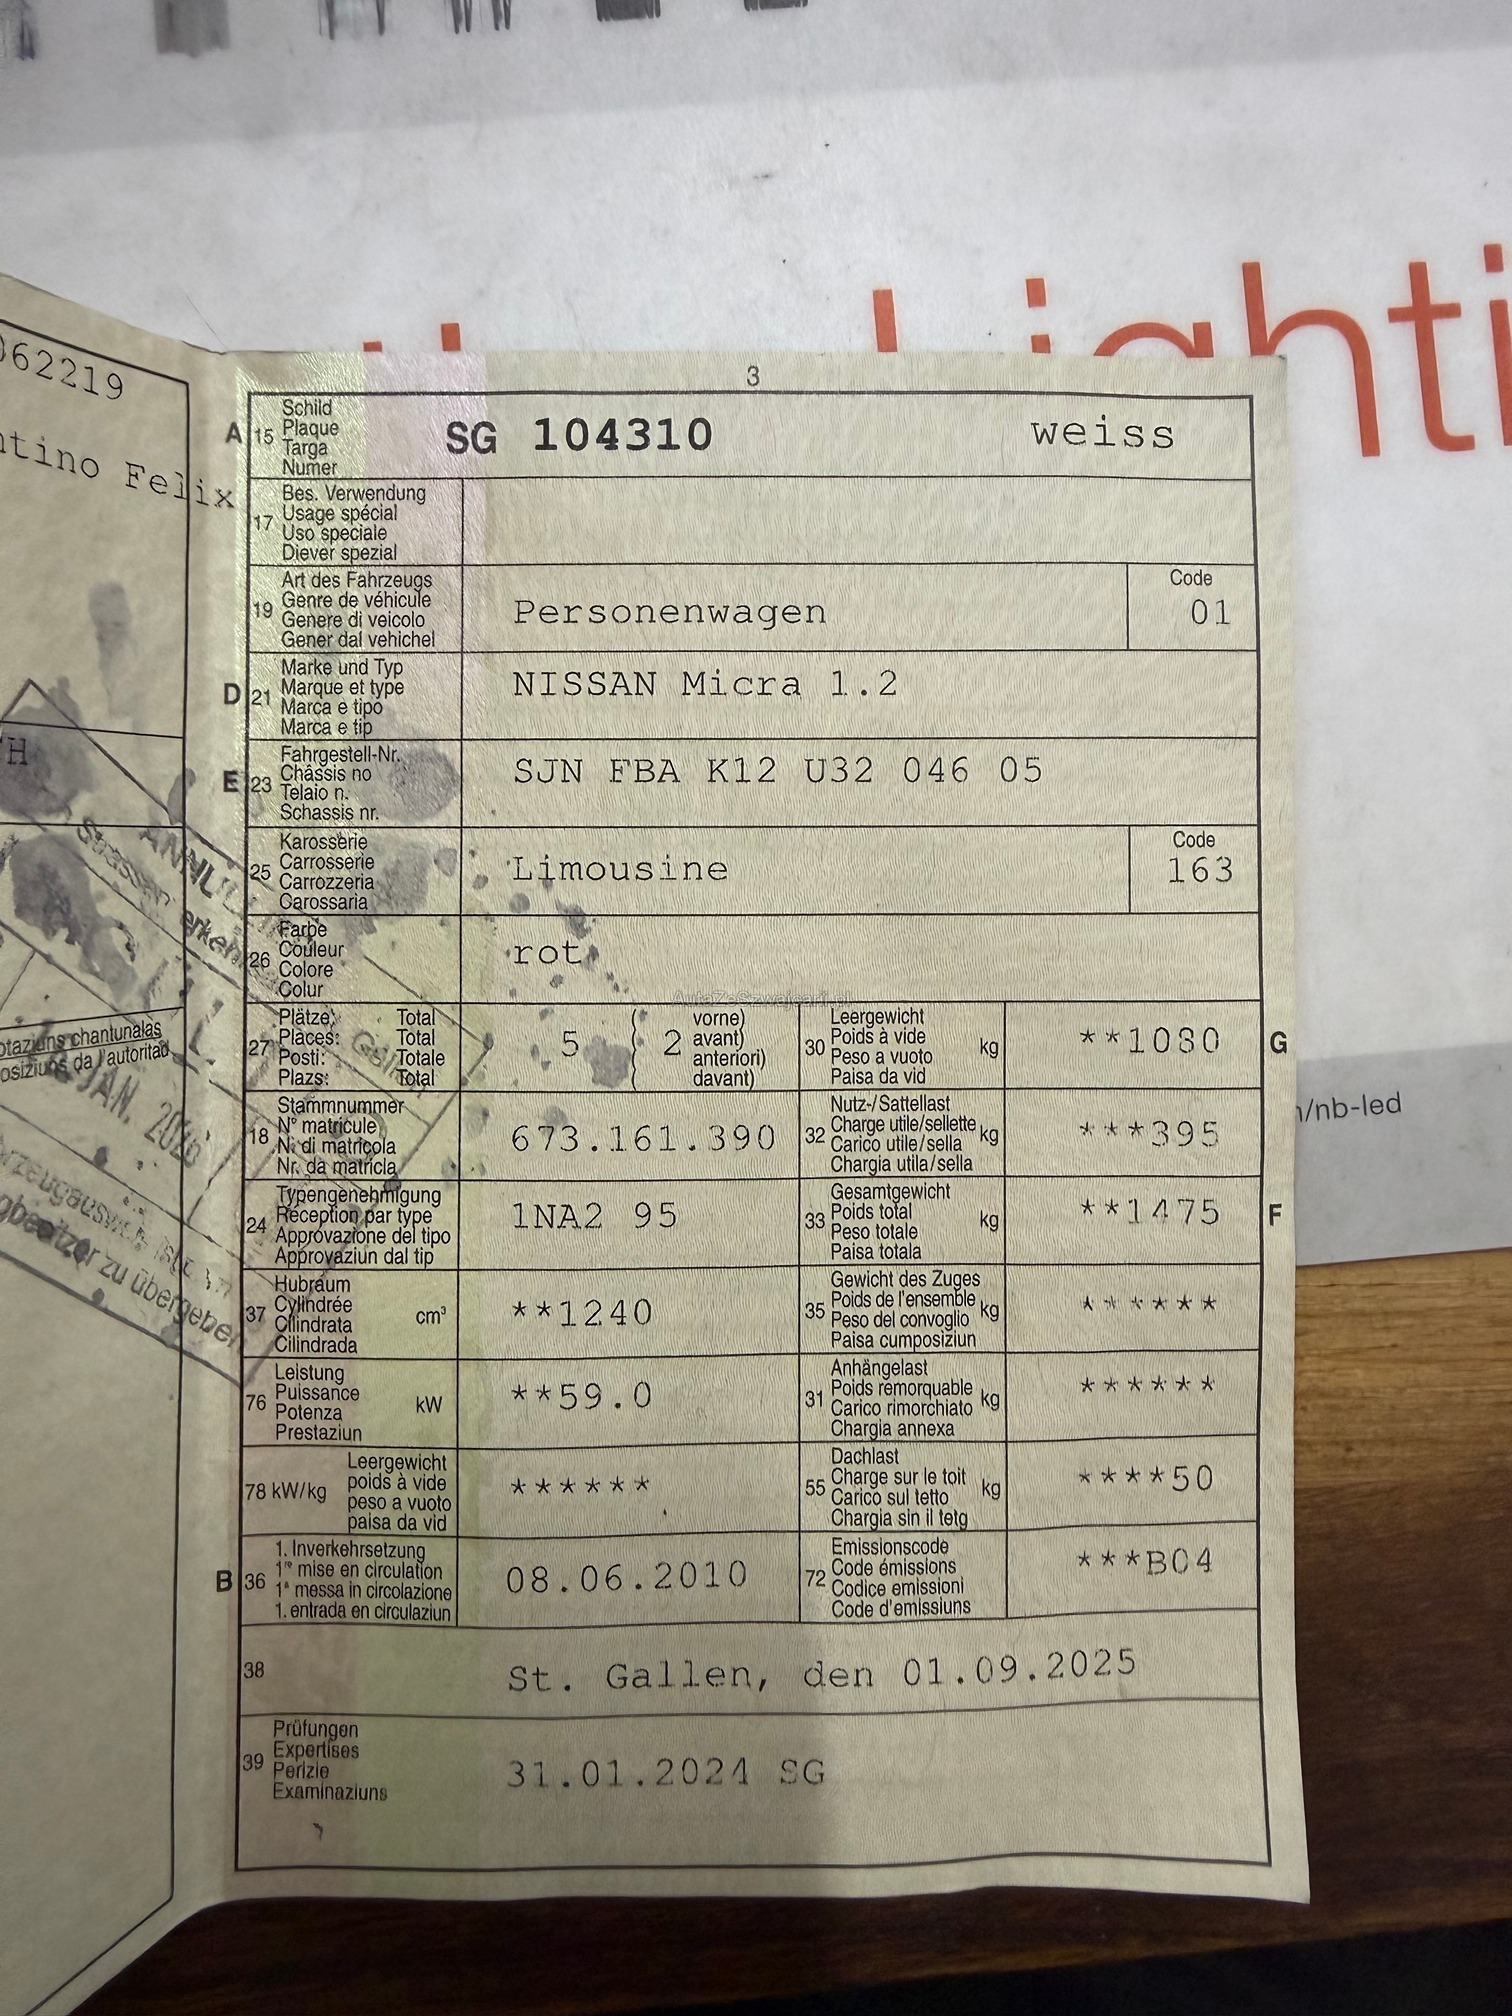 Lighti
n/nb-led
062219
ntino Felix
3
A 15 Schild
Plaque
Targa
Numer
SG 104310 weiss
17 Bes. Verwendung
Usage spécial
Uso speciale
Diever spezial
19 Art des Fahrzeugs
Genre de véhicule
Genere di veicolo
Gener dal vehichel
Personenwagen
Code
01
D 21 Marke und Typ
Marque et type
Marca e tipo
Marca e tip
NISSAN Micra 1.2
E 23 Fahrgestell-Nr.
Châssis no
Telaio n.
Schassis nr.
SJN FBA K12 U32 046 05
25 Karosserie
Carrosserie
Carrozzeria
Carossaria
Limousine
Code
163
26 Farbe
Couleur
Colore
Colur
rot
AutaZeSzwajcarii.pl
27 Plätze: Total
Places: Total
Posti: Totale
Plazs: Total
5 ( 2 vorne)
avant)
anteriori)
davant)
30 Leergewicht
Poids à vide
Peso a vuoto
Paisa da vid
kg
**1080 G
18 Stammnummer
N° matricule
N. di matricola
Nr. da matricla
673.161.390
32 Nutz-/Sattellast
Charge utile/sellette
Carico utile/sella
Chargia utila/sella
kg
***395
24 Typengenehmigung
Réception par type
Approvazione del tipo
Approvaziun dal tip
1NA2 95
33 Gesamtgewicht
Poids total
Peso totale
Paisa totala
kg
**1475 F
37 Hubraum
Cylindrée
Cilindrata
Cilindrada
cm³
**1240
35 Gewicht des Zuges
Poids de l'ensemble
Peso del convoglio
Paisa cumposiziun
kg
******
76 Leistung
Puissance
Potenza
Prestaziun
kW
**59.0
31 Anhängelast
Poids remorquable
Carico rimorchiato
Chargia annexa
kg
******
78 kW/kg Leergewicht
poids à vide
peso a vuoto
paisa da vid
******
55 Dachlast
Charge sur le toit
Carico sul tetto
Chargia sin il tetg
kg
****50
B 36 1. Inverkehrsetzung
1re mise en circulation
1a messa in circolazione
1. entrada en circulaziun
08.06.2010
72 Emissionscode
Code émissions
Codice emissioni
Code d'emissiuns
***B04
38 St. Gallen, den 01.09.2025
39 Prüfungen
Expertises
Perizie
Examinaziuns
31.01.2024 SG
H
otaziuns chantunalas
osiziuns da l'autoritad
JAN. 2026
zu übergeben